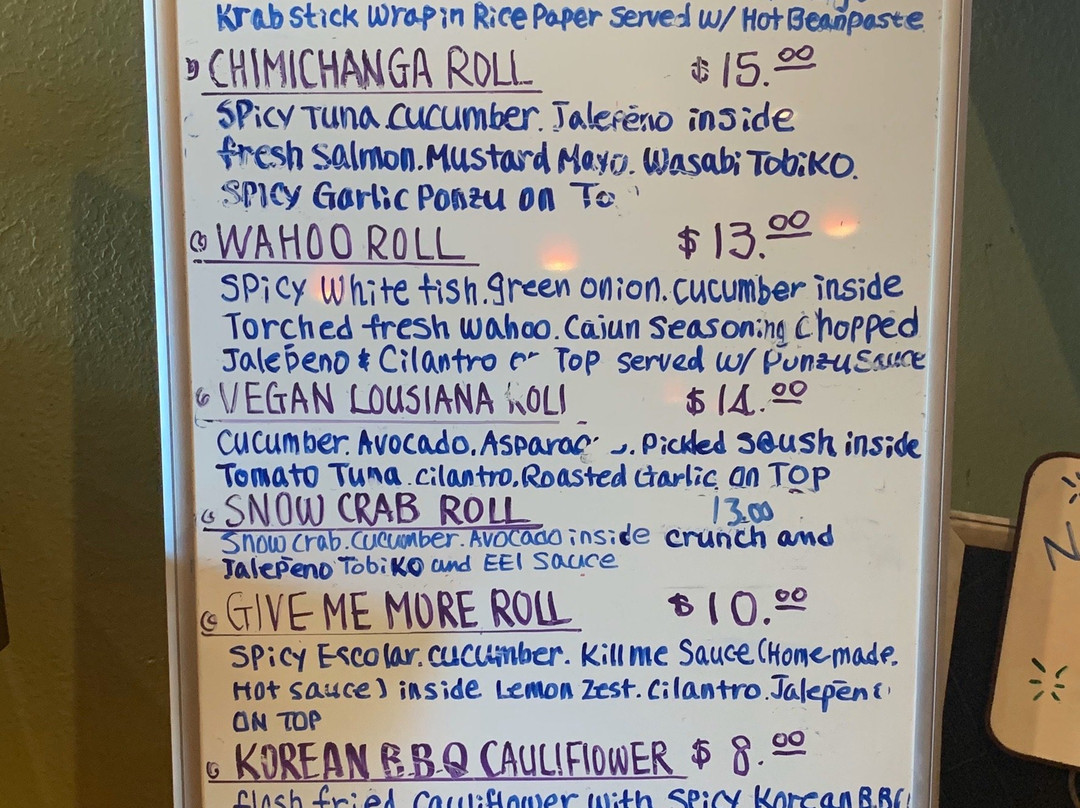 Krab Stick Wrap in Rice Paper Served w/ Hot Beanpaste
CHIMICHANGA ROLL $15.00
Spicy Tuna.Cucumber. Jalepeno inside
fresh Salmon.Mustard Mayo. Wasabi Tobiko.
Spicy Garlic Ponzu on To
WAHOO ROLL $13.00
Spicy White fish.green onion.cucumber inside
Torched fresh wahoo.Cajun Seasoning Chopped
Jalepeno & Cilantro Top served w/ Punzu Sauce
VEGAN LOUSIANA ROLL $14.00
Cucumber. Avocado. Pickled sqush inside
Tomato Tuna.Cilantro.Roasted Garlic on TOP
SNOW CRAB ROLL 13.00
Snow crab.Cucumber.Avocado inside crunch and
Jalepeno Tobiko and EEl Sauce
GIVE ME MORE ROLL $10.00
Spicy Escolar.cucumber. Kill me Sauce (Home made.
Hot sauce) inside Lemon Zest.Cilantro.Jalepen
ON TOP
KOREAN B.B.Q CAULIFLOWER $8.00
flash fried Cauliflower with Spicy Korean B.B.Q